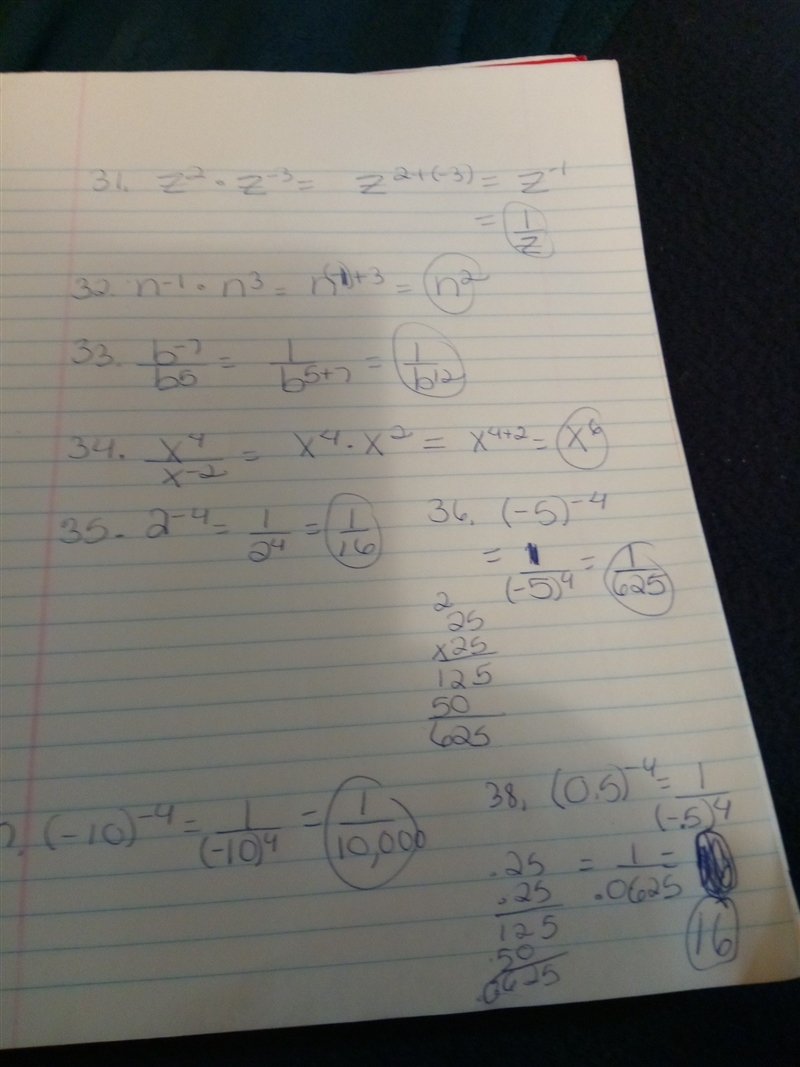 31. z² · z⁻³ = z²⁺⁽⁻³⁾ = z⁻¹
= 1/z
32. n⁻¹ · n³ = n⁽⁻¹⁾⁺³ = n²
33. b⁻⁷/b⁵ = 1/b⁵⁺⁷ = 1/b¹²
34. x⁴/x⁻² = x⁴ · x² = x⁴⁺² = x⁶
35. 2⁻⁴ = 1/2⁴ = 1/16
36. (-5)⁻⁴
= 1/(-5)⁴ = 1/625
2
25
x25
125
50
625
(-10)⁻⁴ = 1/(-10)⁴ = 1/10,000
38. (0.5)⁻⁴ = 1/(-.5)⁴
= 1/.0625 =
16
.25
.25
125
50
.0625